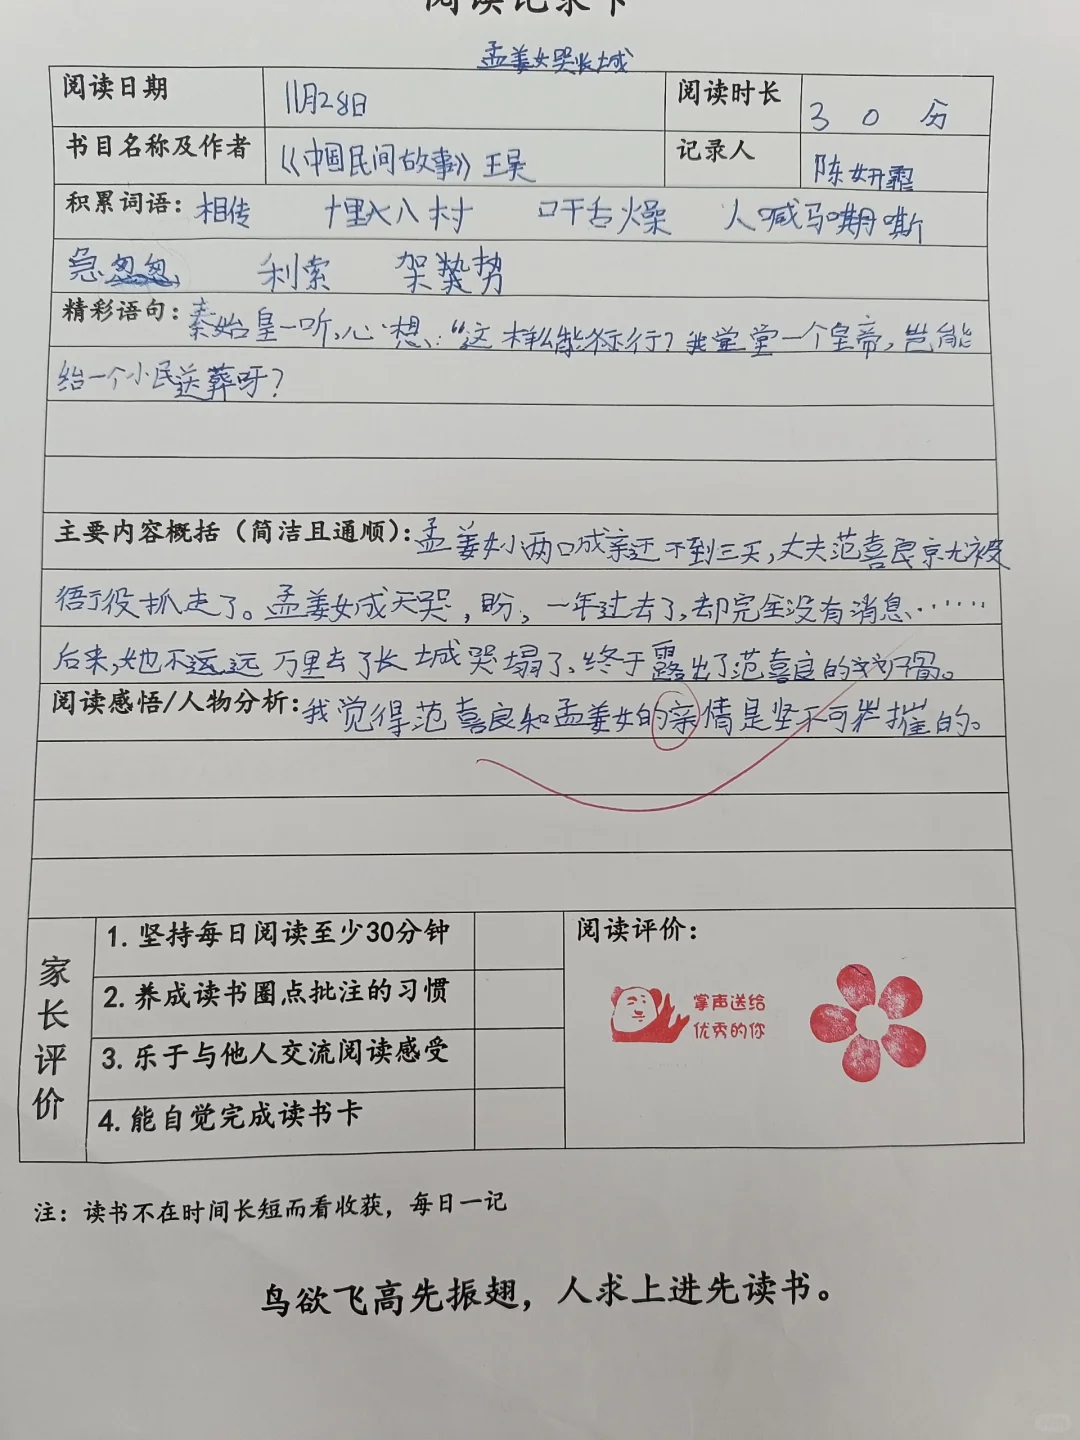 阅读记录卡
孟姜女哭长城
阅读日期 11月28日 阅读时长 30分
书目名称及作者 《中国民间故事》王昊 记录人 陈妍霏
积累词语：相传 十里八村 口干舌燥 人喊马嘶
急匆匆 利索 架势
精彩语句：秦始皇一听，心想：“这样么能行？我堂堂一个皇帝，岂能
给一个小民送葬呀？
主要内容概括（简洁且通顺）：孟姜女小两口成亲还不到三天，丈夫范喜良京尤被
衙役抓走了。孟姜女成天哭，盼，一年过去了，却完全没有消息……
后来，她不远万里去了长城哭塌了，终于露出了范喜良的尸骨。
阅读感悟/人物分析：我觉得范喜良和孟姜女的亲情是坚不可摧的。
家长评价
1. 坚持每日阅读至少30分钟
2. 养成读书圈点批注的习惯
3. 乐于与他人交流阅读感受
4. 能自觉完成读书卡
阅读评价：
掌声送给
优秀的你
注：读书不在时间长短而看收获，每日一记
鸟欲飞高先振翅，人求上进先读书。